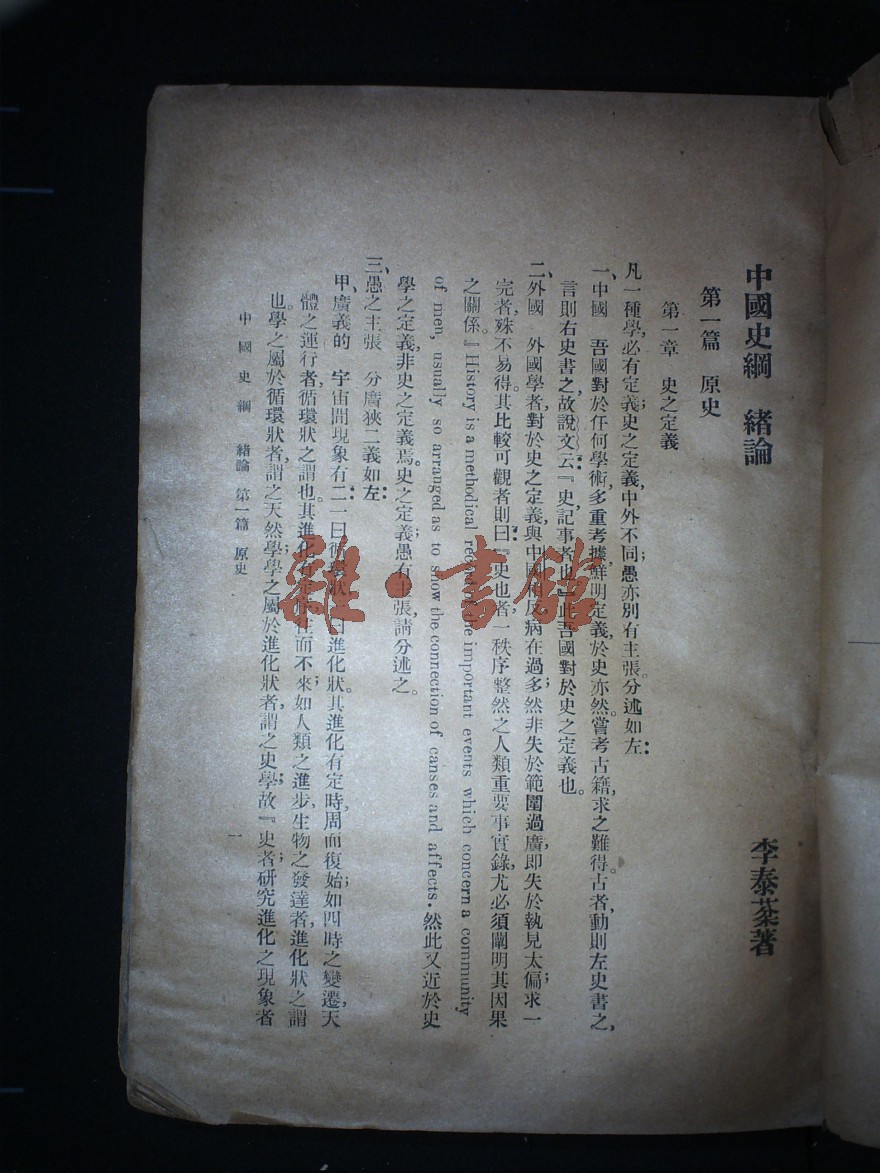 中國史綱　緒論
李泰棻著
第一篇　原史
第一章　史之定義
凡一種學，必有定義；史之定義，中外不同；愚亦別有主張，分述如左：
一、中國　吾國對於任何學術，多重考據，鮮明定義，於史亦然。嘗考古籍，求之難得。古者，動則左史書之，
言則右史書之，故說文云：『史，記事者也。』此吾國對於史之定義也。
二、外國　外國學者，對於史之定義，與中國相反，病在過多；然非失於範圍過廣，即失於執見太偏，求一
完者，殊不易得。其比較可觀者則曰：『史也者，一秩序整然之人類重要事實錄，尤必須闡明其因果
之關係。』History is a methodical record of the important events which concern a community
of men, usually so arranged as to show the connection of canses and affects. 然此又近於史
學之定義，非史之定義焉。史之定義，愚有主張，請分述之。
三、愚之主張　分廣狹二義如左：
甲、廣義的　宇宙間現象有二：一曰循環狀，曰進化狀。其進化有定時，周而復始；如四時之變遷，天
體之運行者，循環狀之謂也。其進化有定序，往而不來；如人類之進步，生物之發達者，進化狀之謂
也。學之屬於循環狀者，謂之天然學；學之屬於進化狀者，謂之史學；故『史者，研究進化之現象者
中國史綱　緒論　第一篇　原史
一
雜·書館